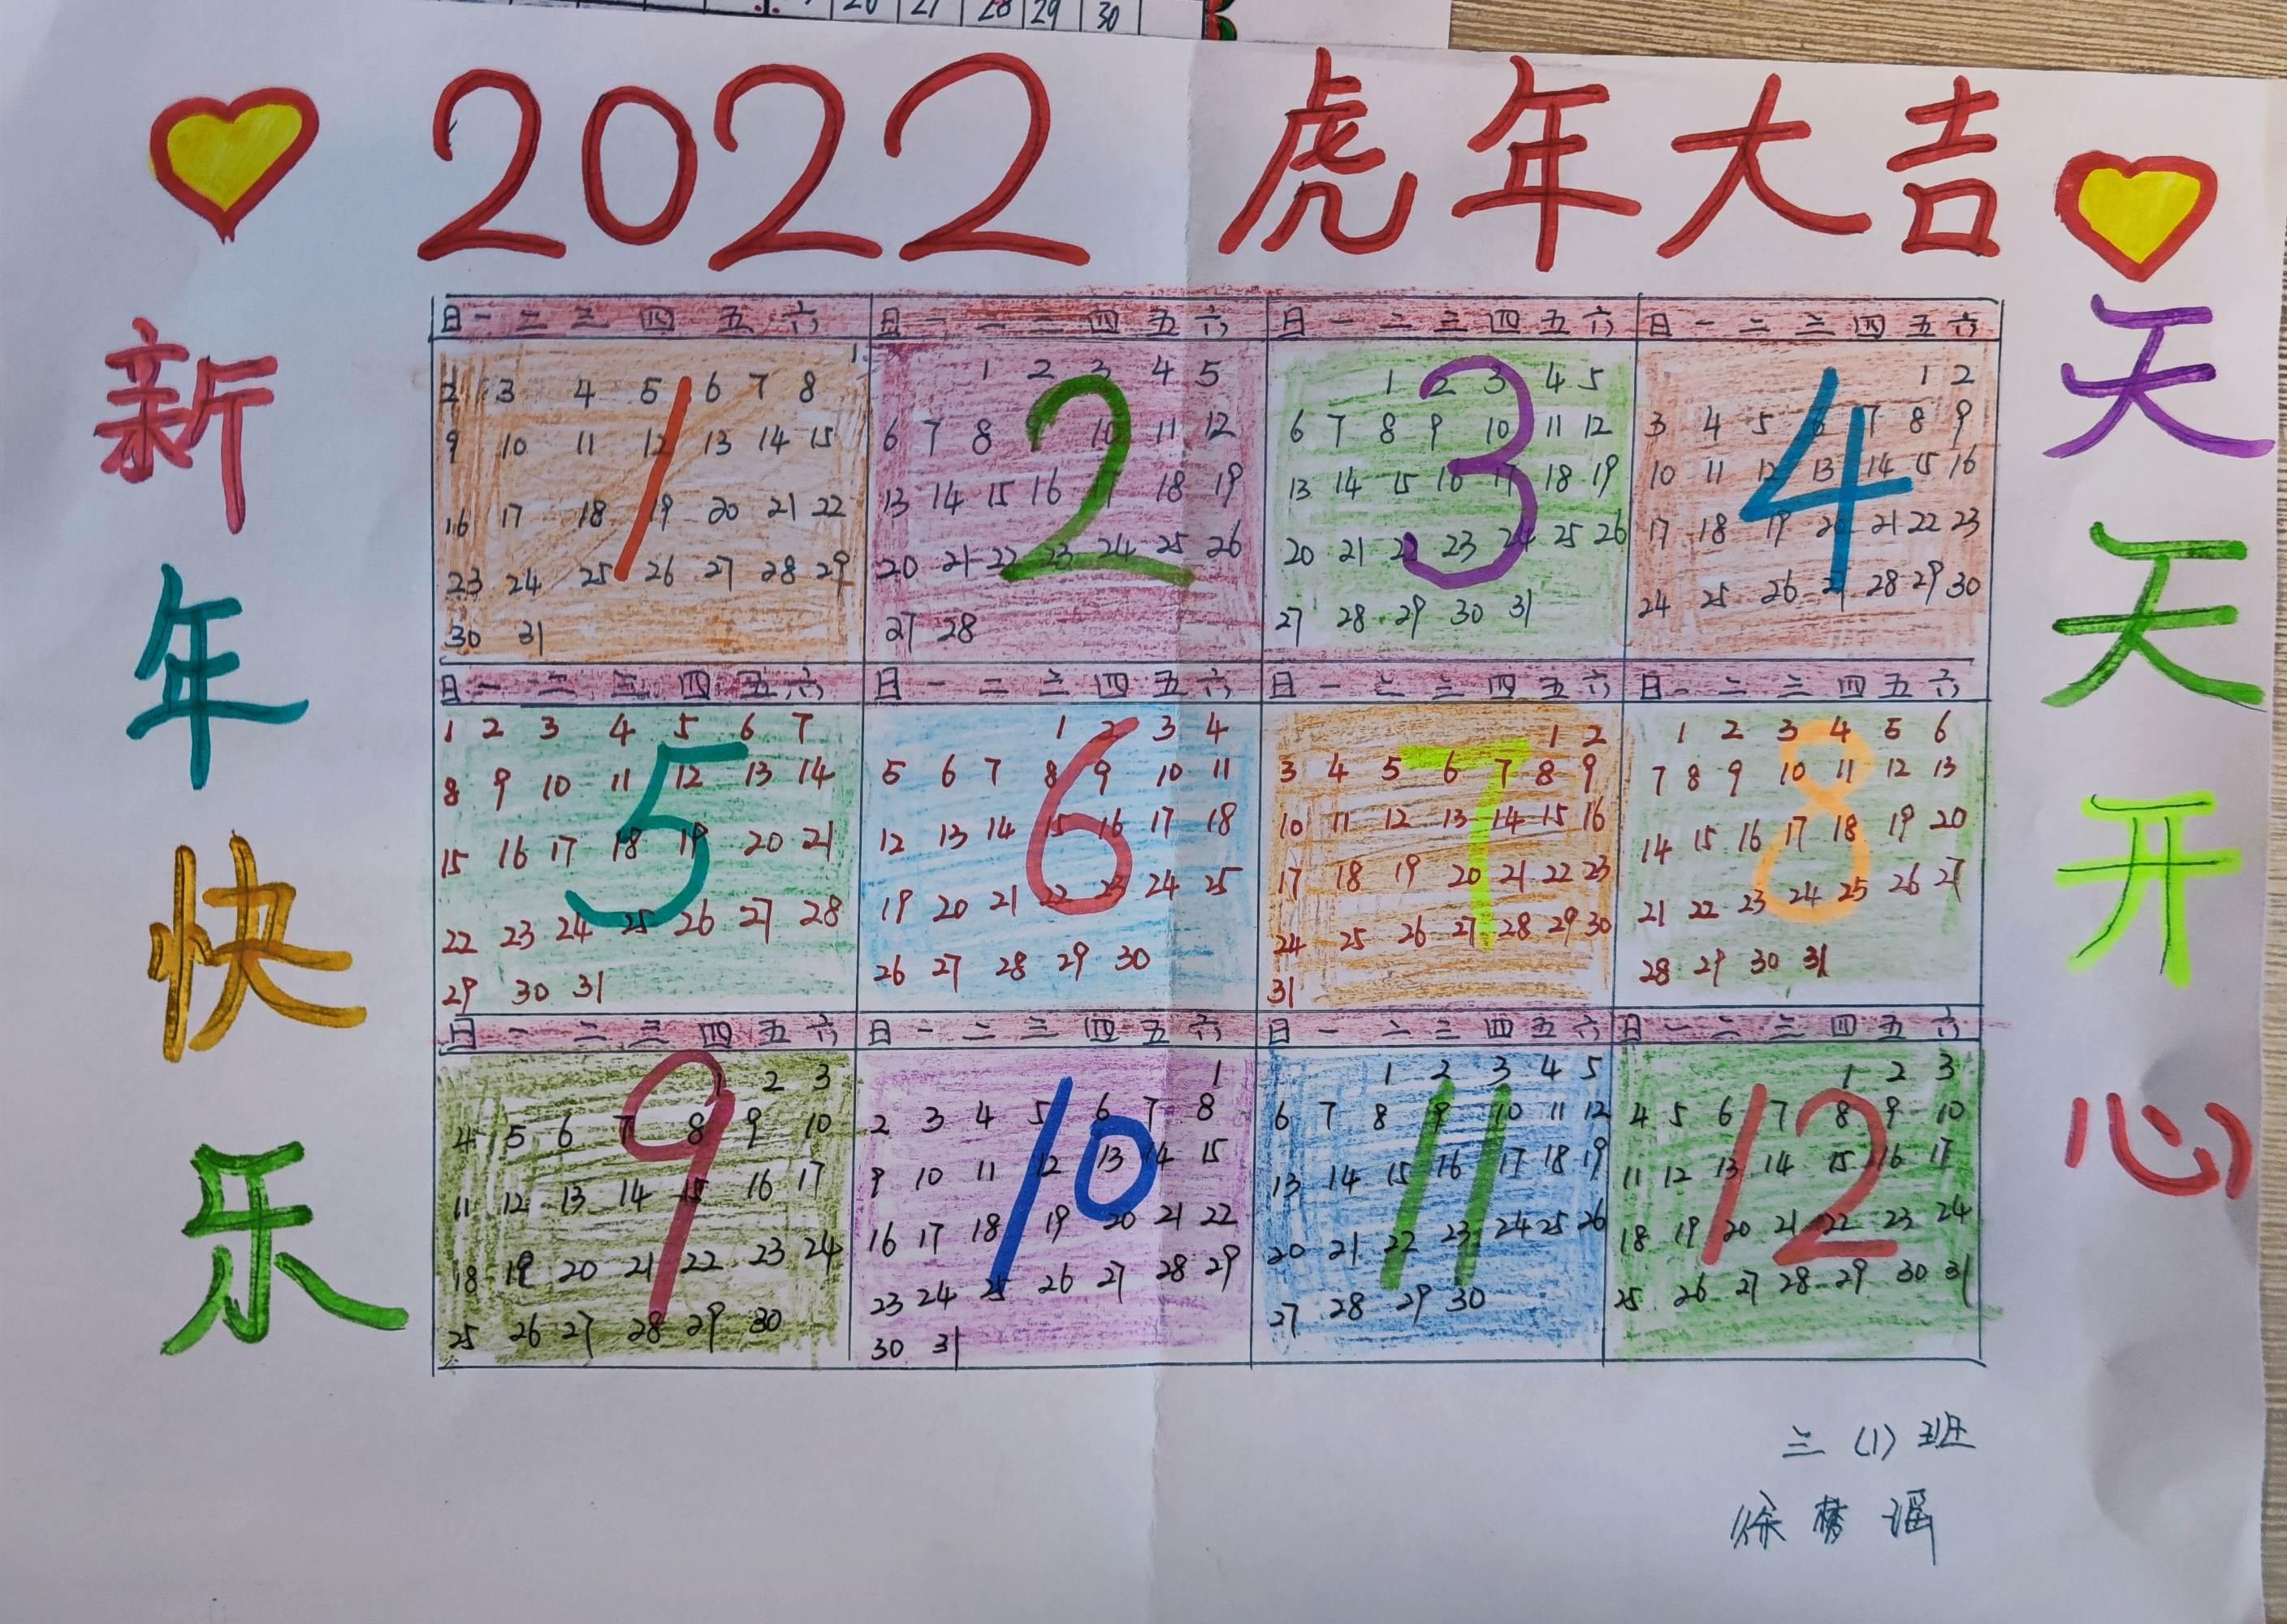 20 21 28 29 30
2022 虎年大吉
新年快乐
天天开心
日 一 二 三 四 五 六
1
1
2 3 4 5 6 7 8
9 10 11 12 13 14 15
16 17 18 19 20 21 22
23 24 25 26 27 28 29
30 31
日 一 二 三 四 五 六
2
1 2 3 4 5
6 7 8 9 10 11 12
13 14 15 16 17 18 19
20 21 22 23 24 25 26
27 28
日 一 二 三 四 五 六
3
1 2 3 4 5
6 7 8 9 10 11 12
13 14 15 16 17 18 19
20 21 22 23 24 25 26
27 28 29 30 31
日 一 二 三 四 五 六
4
1 2
3 4 5 6 7 8 9
10 11 12 13 14 15 16
17 18 19 20 21 22 23
24 25 26 27 28 29 30
日 一 二 三 四 五 六
5
1 2 3 4 5 6 7
8 9 10 11 12 13 14
15 16 17 18 19 20 21
22 23 24 25 26 27 28
29 30 31
日 一 二 三 四 五 六
6
1 2 3 4
5 6 7 8 9 10 11
12 13 14 15 16 17 18
19 20 21 22 23 24 25
26 27 28 29 30
日 一 二 三 四 五 六
7
1 2
3 4 5 6 7 8 9
10 11 12 13 14 15 16
17 18 19 20 21 22 23
24 25 26 27 28 29 30
31
日 一 二 三 四 五 六
8
1 2 3 4 5 6
7 8 9 10 11 12 13
14 15 16 17 18 19 20
21 22 23 24 25 26 27
28 29 30 31
日 一 二 三 四 五 六
9
1 2 3
4 5 6 7 8 9 10
11 12 13 14 15 16 17
18 19 20 21 22 23 24
25 26 27 28 29 30
日 一 二 三 四 五 六
10
1
2 3 4 5 6 7 8
9 10 11 12 13 14 15
16 17 18 19 20 21 22
23 24 25 26 27 28 29
30 31
日 一 二 三 四 五 六
11
1 2 3 4 5
6 7 8 9 10 11 12
13 14 15 16 17 18 19
20 21 22 23 24 25 26
27 28 29 30
日 一 二 三 四 五 六
12
1 2 3
4 5 6 7 8 9 10
11 12 13 14 15 16 17
18 19 20 21 22 23 24
25 26 27 28 29 30 31
三（1）班
徐梦谣